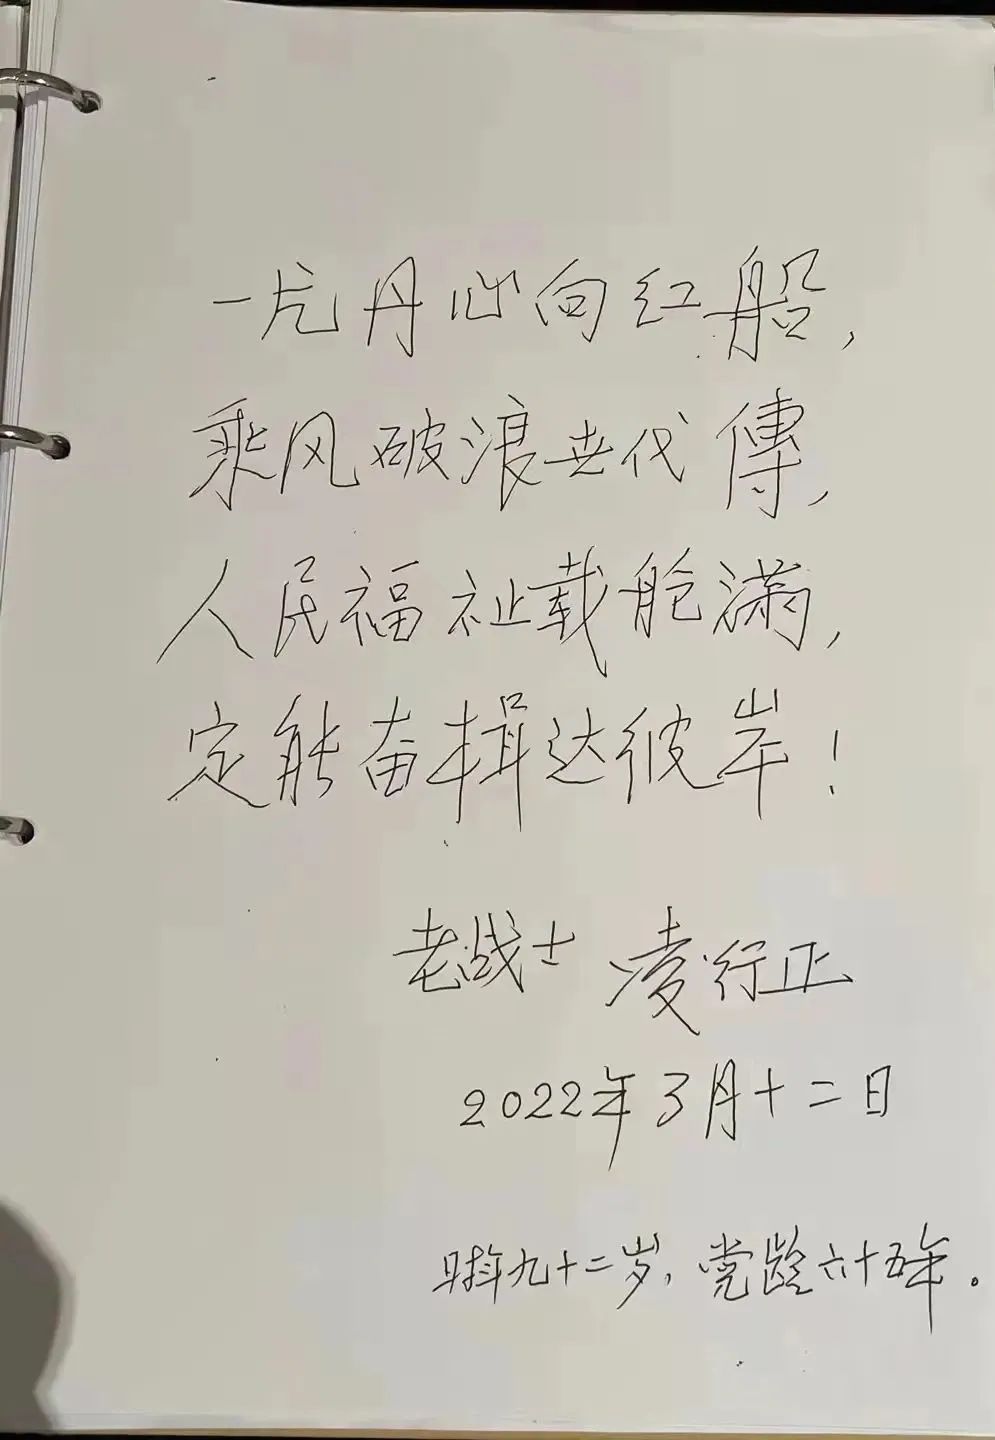 一片丹心向红船,
乘风破浪世代傳,
人民福祉载舱满,
定能奋楫达彼岸!
老战士 凌行正
2022年3月十二日
时年九十二岁,党龄六十五年。